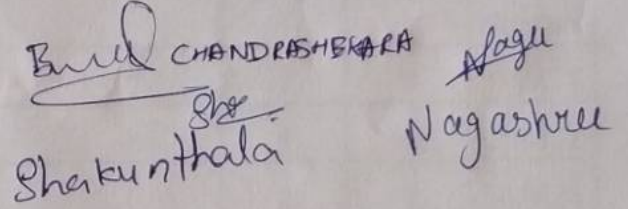 CHANDRASHEKARA Nagu
Sha
Shakunthala Nagashree